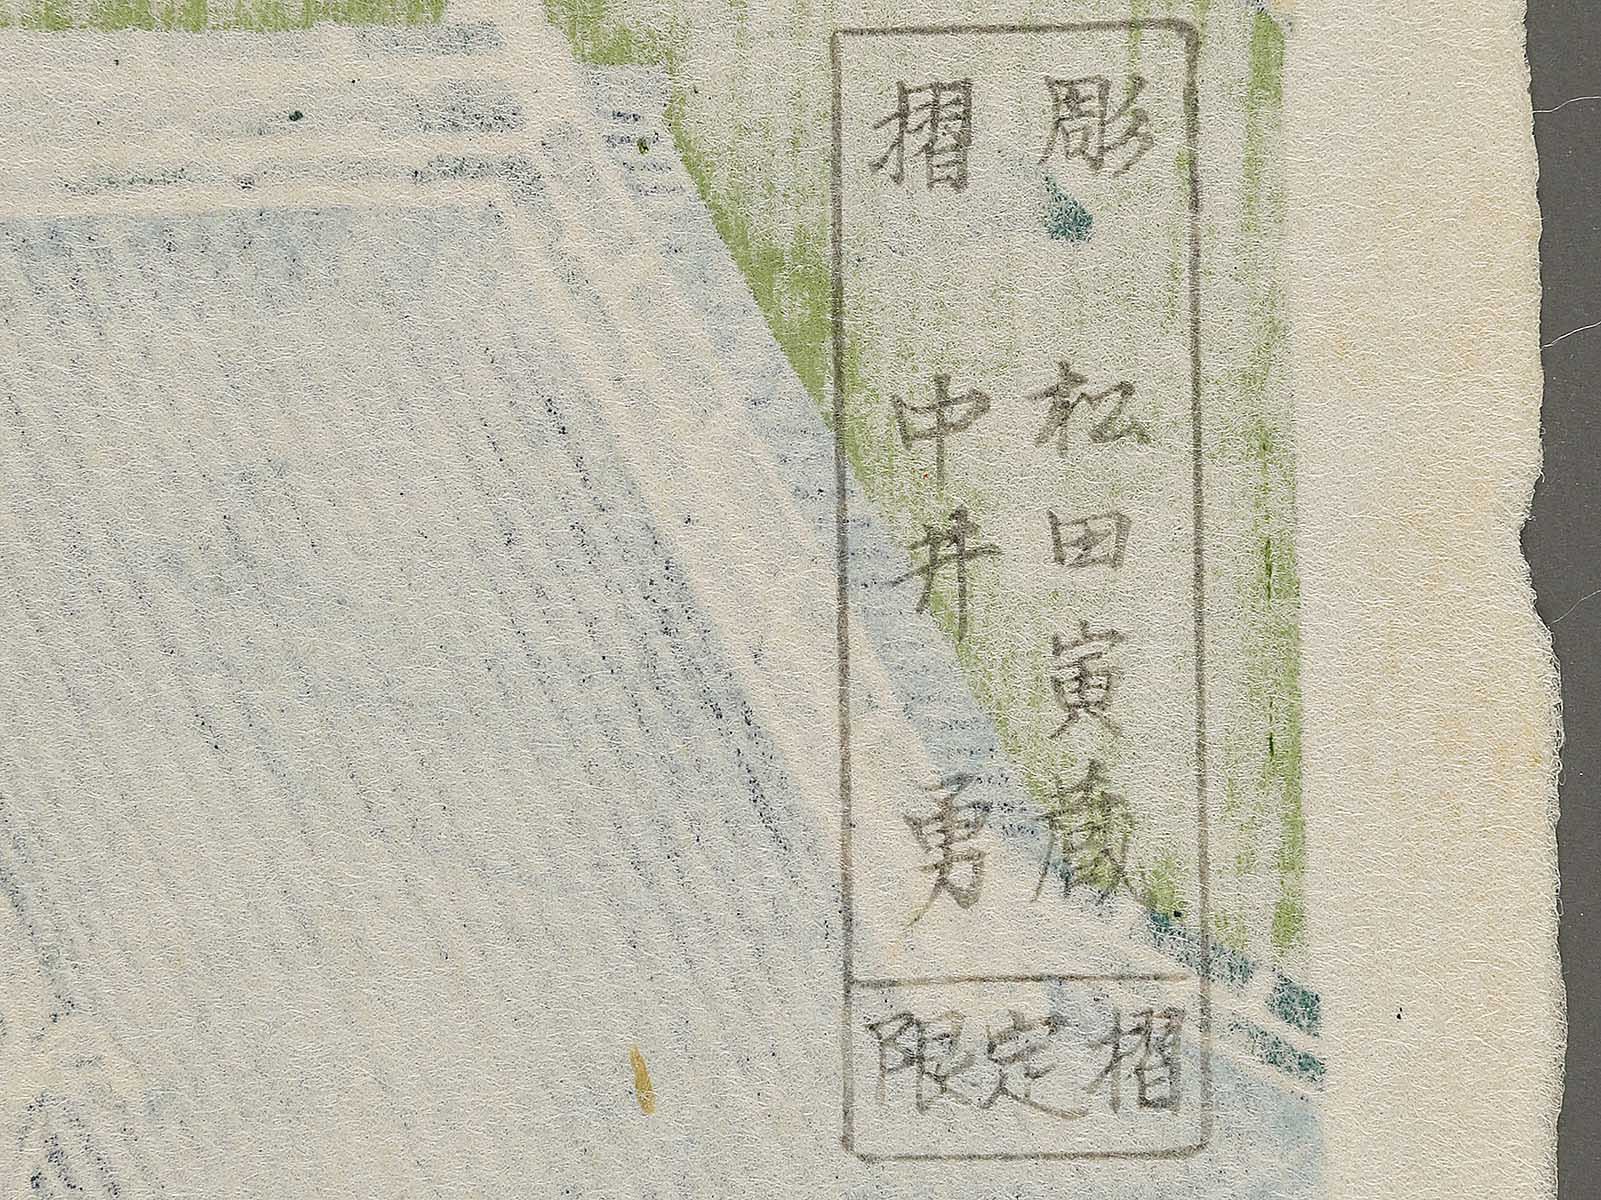 彫 松田寅蔵
摺 中井 勇
限定摺